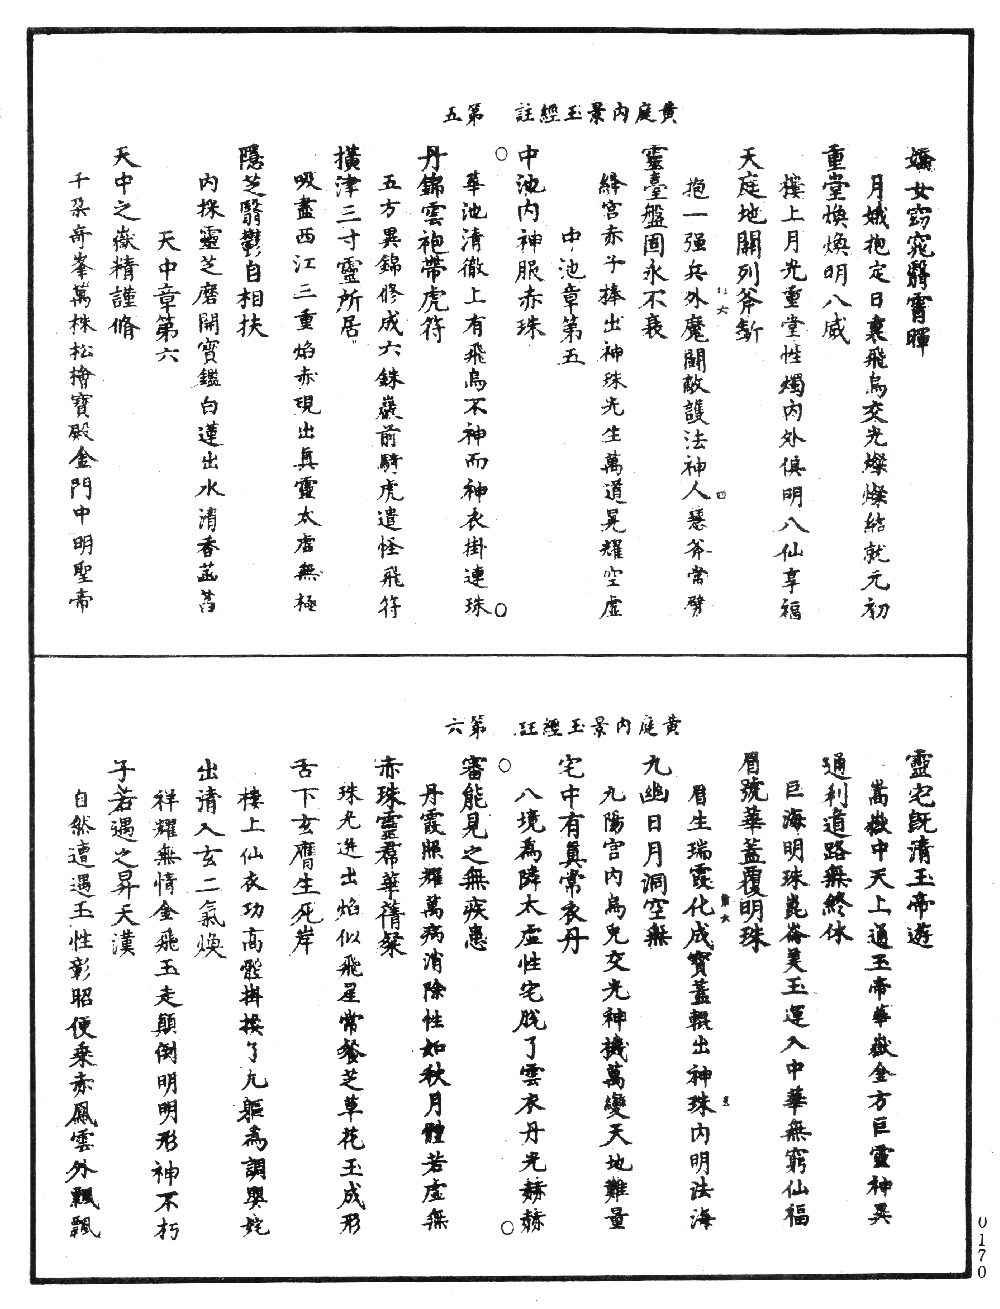 黃庭內景玉經註　第五
嬌女窈窕翳霄暉
月娥抱定日裏飛烏交光燦燦結就元初
重堂煥煥明八威
樓上月光重堂性燭內外俱明八仙享福
天庭地關列斧斨
抱一强兵外魔鬭敵護法神人慧斧常劈
靈臺盤固永不衰
絳宮赤子捧出神珠光生萬道晃耀空虛
中池章第五
中池內神服赤珠
華池清徹上有飛烏不神而神衣掛連珠
丹錦雲袍帶虎符
五方異錦修成六銖巖前騎虎遣怪飛符
橫津三寸靈所居
吸盡西江三重焰赤現出真靈太虛無極
隱芝翳鬱自相扶
內採靈芝磨開寶鑑白蓮出水清香菡萏
天中章第六
天中之嶽精謹脩
千朶奇峯萬株松檜寶殿金門中明聖帝
黃庭內景玉經註　第六
靈宅旣清玉帝遊
嵩嶽中天上通玉帝華嶽金方巨靈神異
通利道路無終休
巨海明珠崑崙美玉運入中華無窮仙福
眉號華蓋覆明珠
眉生瑞霞化成寶蓋輥出神珠內明法海
九幽日月洞空無
九陽宮內烏兔交光神機萬變天地難量
宅中有真常衣丹
八境爲隣太虛性宅脫了雲衣丹光赫赫
審能見之無疾患
丹霞照耀萬病消除性如秋月體若虛無
赤珠靈帬華蒨粲
珠光迸出焰似飛星常餐芝草花玉成形
舌下玄膺生死岸
樓上仙衣功高髭掛換了九軀爲調與姹
出清入玄二氣煥
祥耀無情金飛玉走顛倒明明形神不朽
子若遇之昇天漢
自然遭遇玉性彰昭便乗赤鳳雲外飄飄
0170